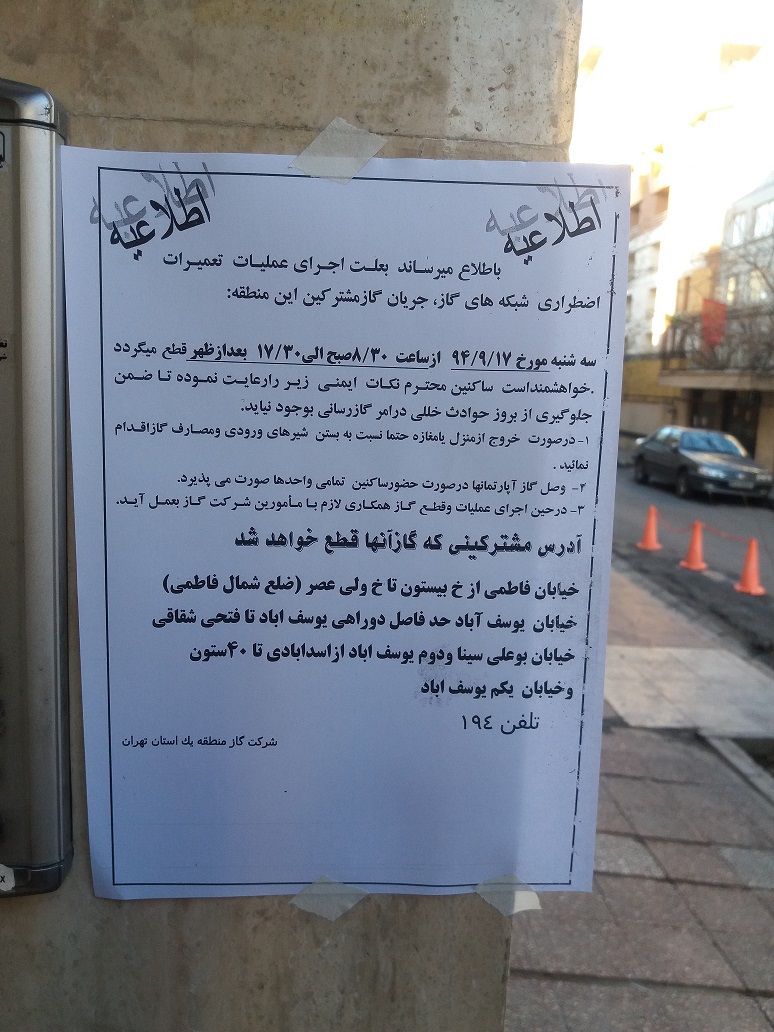 اطلاعیه
اطلاعیه
باطلاع میرساند بعلت اجرای عملیات تعمیرات
اضطراری شبکه های گاز، جریان گازمشترکین این منطقه:
سه شنبه مورخ ۹۴/۹/۱۷ ازساعت ۸/۳۰صبح الی۱۷/۳۰ بعدازظهر قطع میگردد
.خواهشمنداست ساکنین محترم نکات ایمنی زیر رارعایت نموده تا ضمن
جلوگیری از بروز حوادث خللی درامر گازرسانی بوجود نیاید.
۱- درصورت خروج ازمنزل یامغازه حتما نسبت به بستن شیرهای ورودی ومصارف گازاقدام
نمائید .
۲- وصل گاز آپارتمانها درصورت حضورساکنین تمامی واحدها صورت می پذیرد.
۳- درحین اجرای عملیات وقطع گاز همکاری لازم با مأمورین شرکت گاز بعمل آید.
آدرس مشترکینی که گازآنها قطع خواهد شد
خیابان فاطمی از خ بیستون تا خ ولی عصر (ضلع شمال فاطمی)
خیابان یوسف آباد حد فاصل دوراهی یوسف اباد تا فتحی شقاقی
خیابان بوعلی سینا ودوم یوسف اباد ازاسدابادی تا ۴۰ستون
وخیابان یکم یوسف اباد
تلفن ١٩٤
شرکت گاز منطقه یك استان تهران